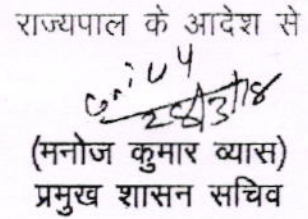 राज्यपाल के आदेश से
28/3/18
(मनोज कुमार व्यास)
प्रमुख शासन सचिव